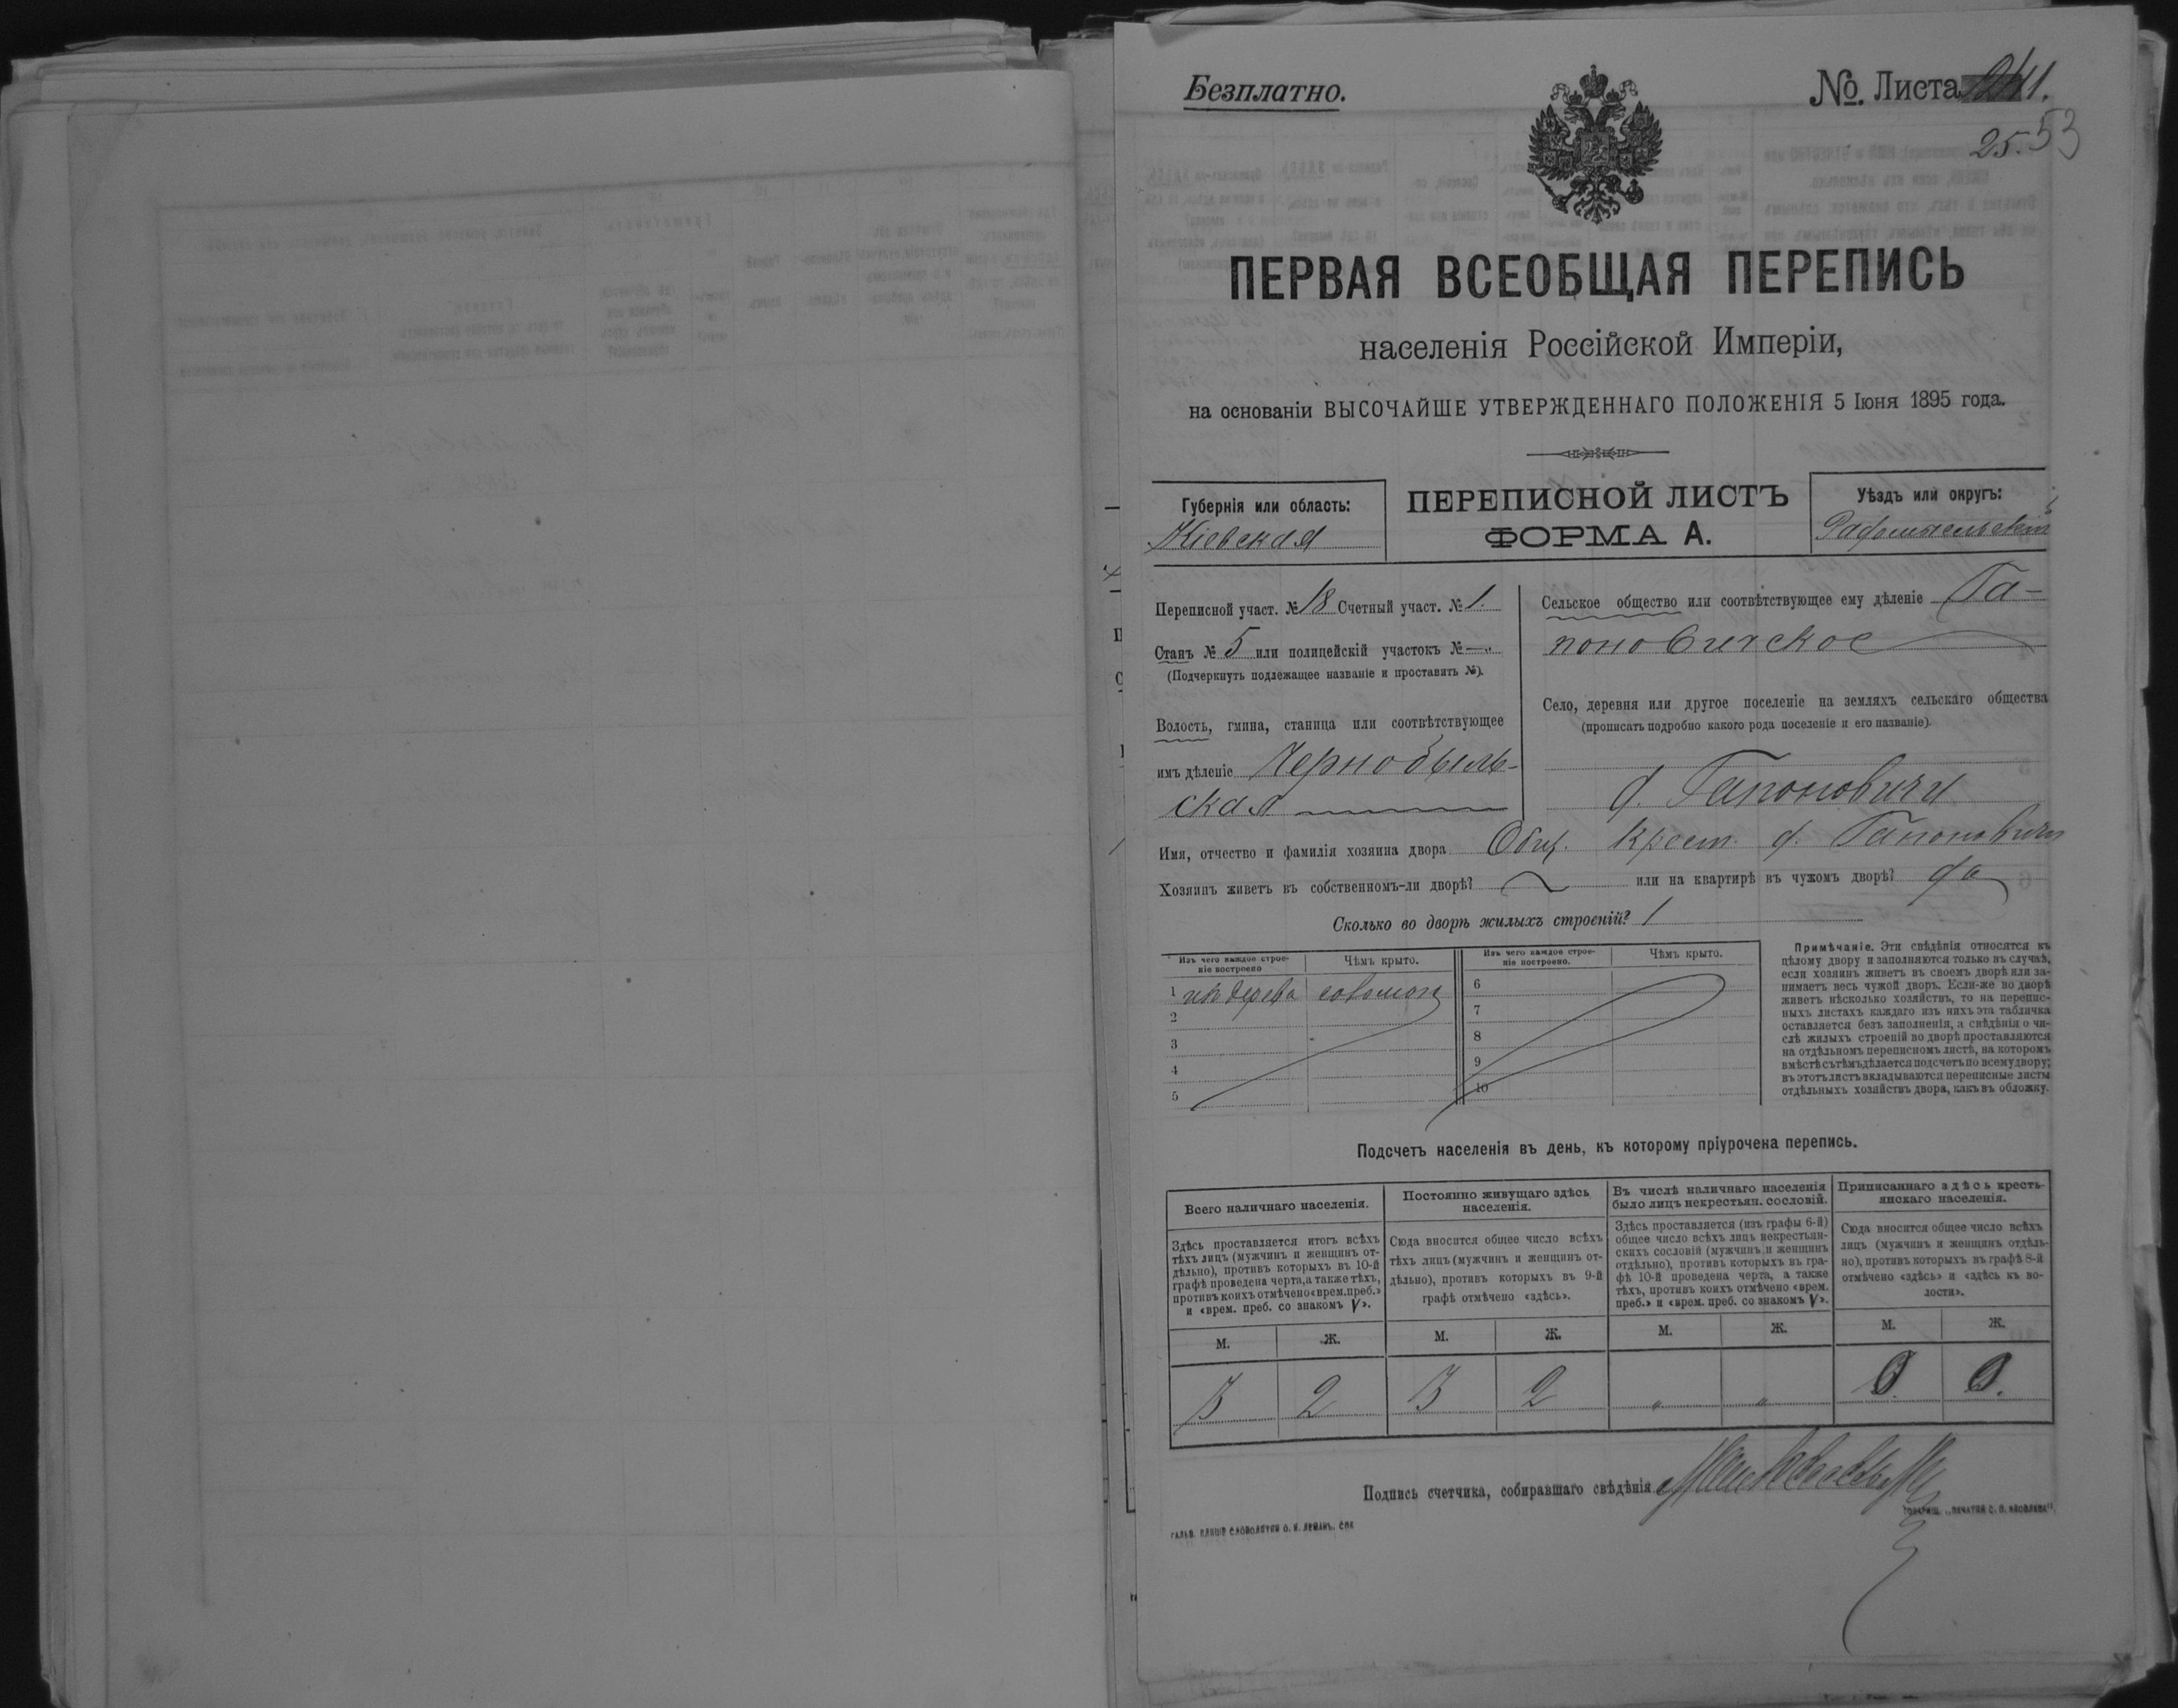 Безплатно.
№. Листа
25. 53
ПЕРВАЯ ВСЕОБЩАЯ ПЕРЕПИСЬ
населенія Россійской Имперіи,
на основаніи ВЫСОЧАЙШЕ УТВЕРЖДЕННАГО ПОЛОЖЕНІЯ 5 Іюня 1895 года.
Губернія или область:
Кіевская
ПЕРЕПИСНОЙ ЛИСТЪ
ФОРМА А.
Уѣздъ или округъ:
Радомысльскій
Переписной участ. № 18 Счетный участ. № 1.
Станъ № 5 или полицейскій участокъ № — „
(Подчеркнуть подлежащее названіе и проставить №).
Волость, гмина, станица или соотвѣтствующее
имъ дѣленіе Чернобыль-
ская
Сельское общество или соотвѣтствующее ему дѣленіе Га-
поновичское
Село, деревня или другое поселеніе на земляхъ сельскаго общества
(прописать подробно какого рода поселеніе и его названіе).
д. Гапоновичи
Имя, отчество и фамилія хозяина двора Общ. крест. д. Гапоновичи
Хозяинъ живетъ въ собственномъ-ли дворѣ? или на квартирѣ въ чужомъ дворѣ? да
Сколько во дворѣ жилыхъ строеній? 1
Изъ чего каждое строе-
ніе построено
Чѣмъ крыто.
Изъ чего каждое строе-
ніе построено.
Чѣмъ крыто.
1 изъ дерева соломою
2
3
4
5
6
7
8
9
10
Примѣчаніе. Эти свѣдѣнія относятся къ
цѣлому двору и заполняются только въ случаѣ,
если хозяинъ живетъ въ своемъ дворѣ или за-
нимаетъ весь чужой дворъ. Если-же во дворѣ
живетъ нѣсколько хозяйствъ, то на перепис-
ныхъ листахъ каждаго изъ нихъ эта табличка
оставляется безъ заполненія, а свѣдѣнія о чи-
слѣ жилыхъ строеній во дворѣ проставляются
на отдѣльномъ переписномъ листѣ, на которомъ
вмѣстѣ съ тѣмъ дѣлается подсчетъ по всему двору;
въ этотъ листъ вкладываются переписные листы
отдѣльныхъ хозяйствъ двора, какъ въ обложку.
Подсчетъ населенія въ день, къ которому пріурочена перепись.
Всего наличнаго населенія.
Здѣсь проставляется итогъ всѣхъ
тѣхъ лицъ (мужчинъ и женщинъ от-
дѣльно), противъ которыхъ въ 10-й
графѣ проведена черта, а также тѣхъ,
противъ коихъ отмѣчено «врем. преб.»
и «врем. преб. со знакомъ V».
Постоянно живущаго здѣсь
населенія.
Сюда вносится общее число всѣхъ
тѣхъ лицъ (мужчинъ и женщинъ от-
дѣльно), противъ которыхъ въ 9-й
графѣ отмѣчено «здѣсь».
Въ числѣ наличнаго населенія
было лицъ некрестьян. сословій.
Здѣсь проставляется (изъ графы 6-й)
общее число всѣхъ лицъ некрестьян-
скихъ сословій (мужчинъ и женщинъ
отдѣльно), противъ которыхъ въ гра-
фѣ 10-й проведена черта, а также
тѣхъ, противъ коихъ отмѣчено «врем.
преб.» и «врем. преб. со знакомъ V».
Приписаннаго здѣсь кресть-
янскаго населенія.
Сюда вносится общее число всѣхъ
лицъ (мужчинъ и женщинъ отдѣль-
но), противъ которыхъ въ графѣ 8-й
отмѣчено «здѣсь» и «здѣсь къ во-
лости».
М. Ж. М. Ж. М. Ж. М. Ж.
3 2 3 2 „ „ 0. 0.
Подпись счетчика, собиравшаго свѣдѣнія